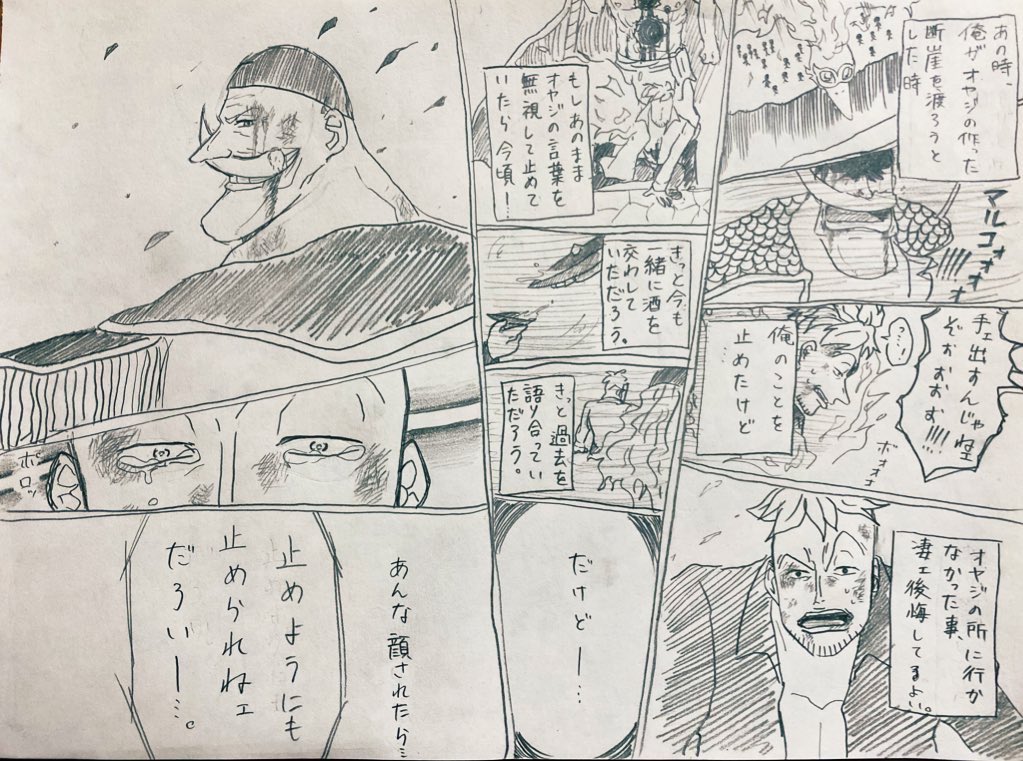 あの時、
俺がオヤジの作った
断崖を渡ろうと
した時
マルコォォォオ!!!!
手ェ出すんじゃねェ
ぞぉおおおお!!!!
…?…!
俺のことを
止めたけど
…
ボォォォ
オヤジの所に行か
なかった事、
凄ェ後悔してるよい。
もしあのまま
オヤジの言葉を
無視して止めて
いたら今頃ー…
きっと今も
一緒に酒を
交わして
いただろう。
きっと過去を
語り合ってい
ただろう。
だけどー…
ポロッ
あんな顔されたら…
止めようにも
止められねェ
だろいー…。